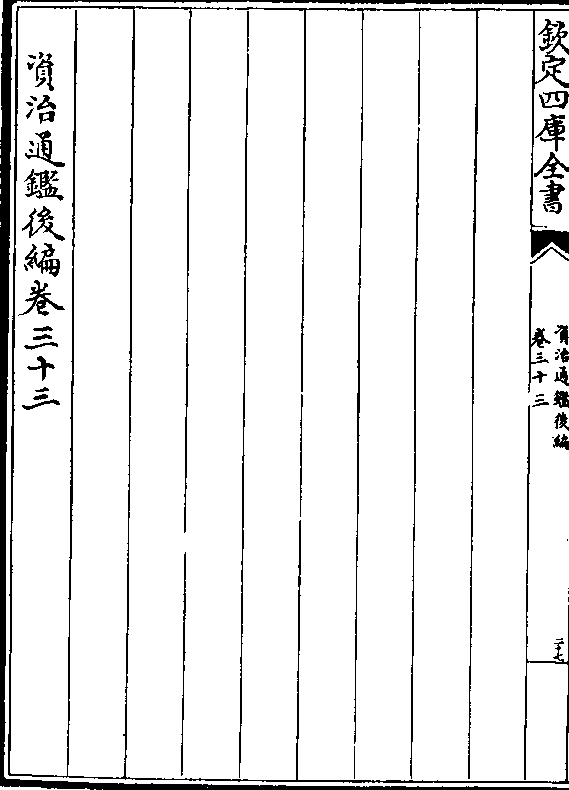 欽定四庫全書
資治通鑑後編
卷三十三
二十七
資治通鑑後編卷三十三